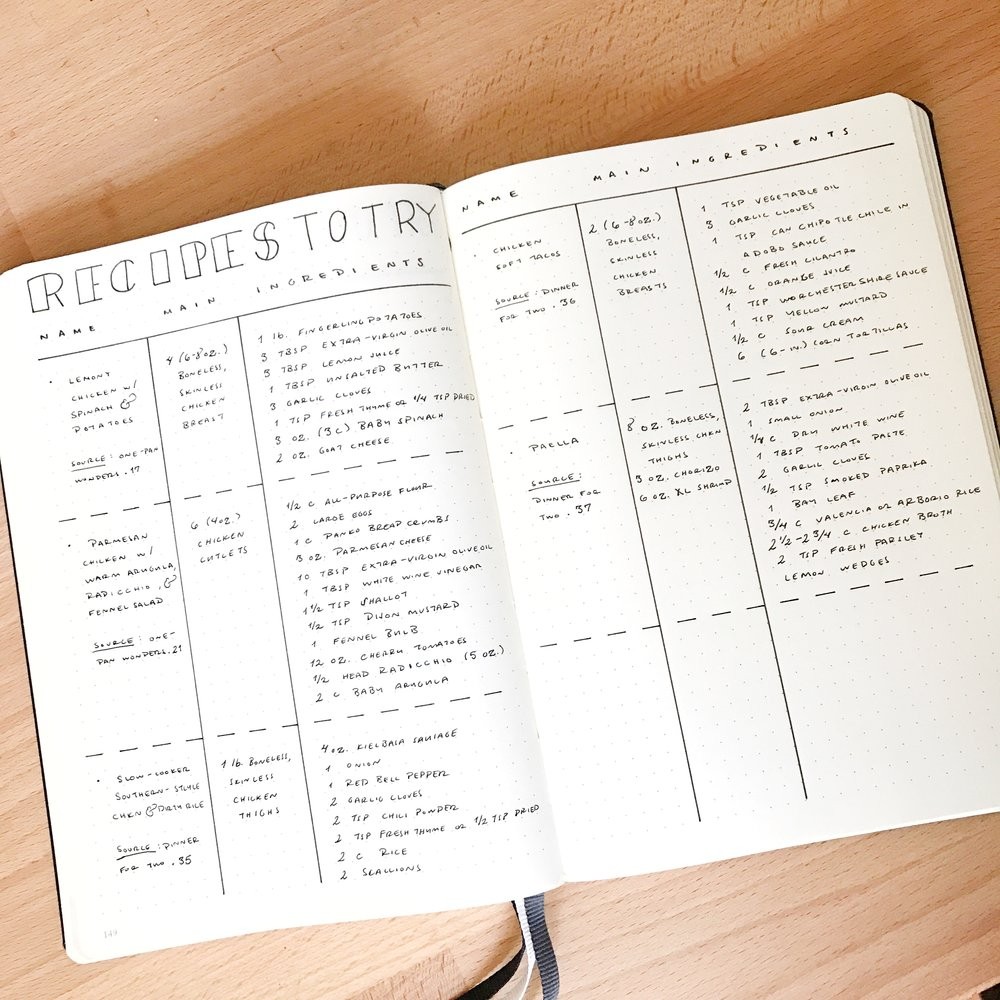 RECIPES TO TRY
NAME MAIN INGREDIENTS
• LEMONY
CHICKEN W/
SPINACH &
POTATOES
SOURCE: ONE-PAN
WONDERS.17
4 (6-8OZ.)
BONELESS,
SKINLESS
CHICKEN
BREAST
1 lb. FINGERLING POTATOES
3 TBSP EXTRA-VIRGIN OLIVE OIL
3 TBSP LEMON JUICE
1 TBSP UNSALTED BUTTER
3 GARLIC CLOVES
1 TSP FRESH THYME OR 1/4 TSP DRIED
3 OZ. (3C) BABY SPINACH
2 OZ. GOAT CHEESE
• PARMESAN
CHICKEN W/
WARM ARUGULA,
RADICCHIO, &
FENNEL SALAD
SOURCE: ONE-
PAN WONDERS.21
6 (4OZ.)
CHICKEN
CUTLETS
1/2 C ALL-PURPOSE FLOUR
2 LARGE EGGS
1 C PANKO BREAD CRUMBS
3 OZ. PARMESAN CHEESE
10 TBSP EXTRA-VIRGIN OLIVE OIL
1 TBSP WHITE WINE VINEGAR
1 1/2 TSP SHALLOT
1/2 TSP DIJON MUSTARD
1 FENNEL BULB
12 OZ. CHERRY TOMATOES
1/2 HEAD RADICCHIO (5 OZ.)
2 C BABY ARUGULA
• SLOW-COOKER
SOUTHERN-STYLE
CHKN & DIRTY RICE
SOURCE: DINNER
FOR TWO.35
1 lb. BONELESS,
SKINLESS
CHICKEN
THIGHS
4 OZ. KIELBASA SAUSAGE
1 ONION
1 RED BELL PEPPER
2 GARLIC CLOVES
2 TSP CHILI POWDER
2 TSP FRESH THYME OR 1/2 TSP DRIED
2 C RICE
2 SCALLIONS
149
NAME MAIN INGREDIENTS
• CHICKEN
SOFT TACOS
SOURCE: DINNER
FOR TWO.36
2 (6-8OZ.)
BONELESS,
SKINLESS
CHICKEN
BREASTS
1 TSP VEGETABLE OIL
3 GARLIC CLOVES
1 TSP CAN CHIPOTLE CHILE IN
ADOBO SAUCE
1/2 C FRESH CILANTRO
1/2 C ORANGE JUICE
1 TSP WORCHESTERSHIRE SAUCE
1 TSP YELLOW MUSTARD
1/2 C SOUR CREAM
6 (6-IN.) CORN TORTILLAS
• PAELLA
SOURCE:
DINNER FOR
TWO.37
8 OZ. BONELESS,
SKINLESS CHKN
THIGHS
3 OZ. CHORIZO
6 OZ. XL SHRIMP
2 TBSP EXTRA-VIRGIN OLIVE OIL
1 SMALL ONION
1/4 C DRY WHITE WINE
1 TBSP TOMATO PASTE
2 GARLIC CLOVES
1/2 TSP SMOKED PAPRIKA
1 BAY LEAF
3/4 C VALENCIA OR ARBORIO RICE
2 1/2-2 3/4 C CHICKEN BROTH
2 TSP FRESH PARSLEY
LEMON WEDGES